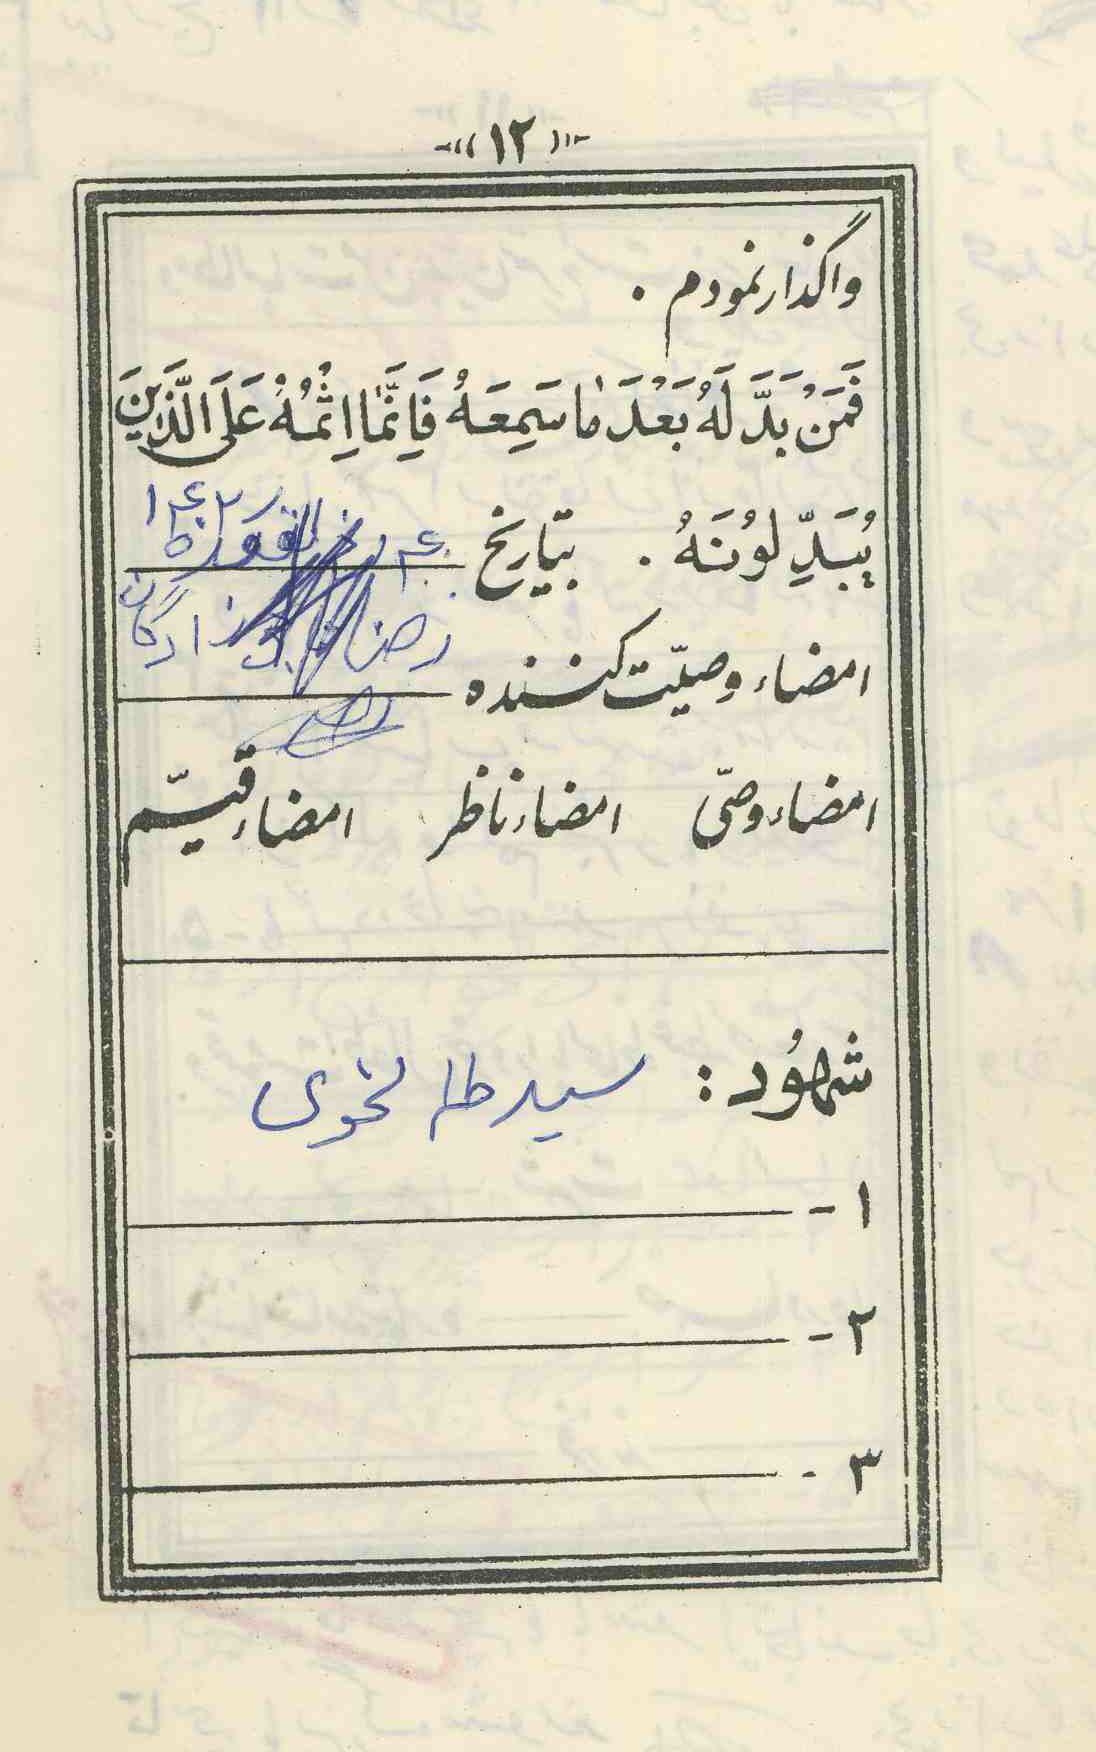 -«(۱۲)»-
واگذار نمودم .
فَمَنْ بَدَّلَهُ بَعْدَ مٰا سَمِعَهُ فَاِنَّمٰا اِثْمُهُ عَلَی الَّذینَ
یُبَدِّلُونَهُ . بتاریخ
رضا
امضاء وصیّت کننده
امضاء وصّی امضاء ناظر امضاء قیّم
شهُود : سید طه
۱ -
۲ -
۳ -